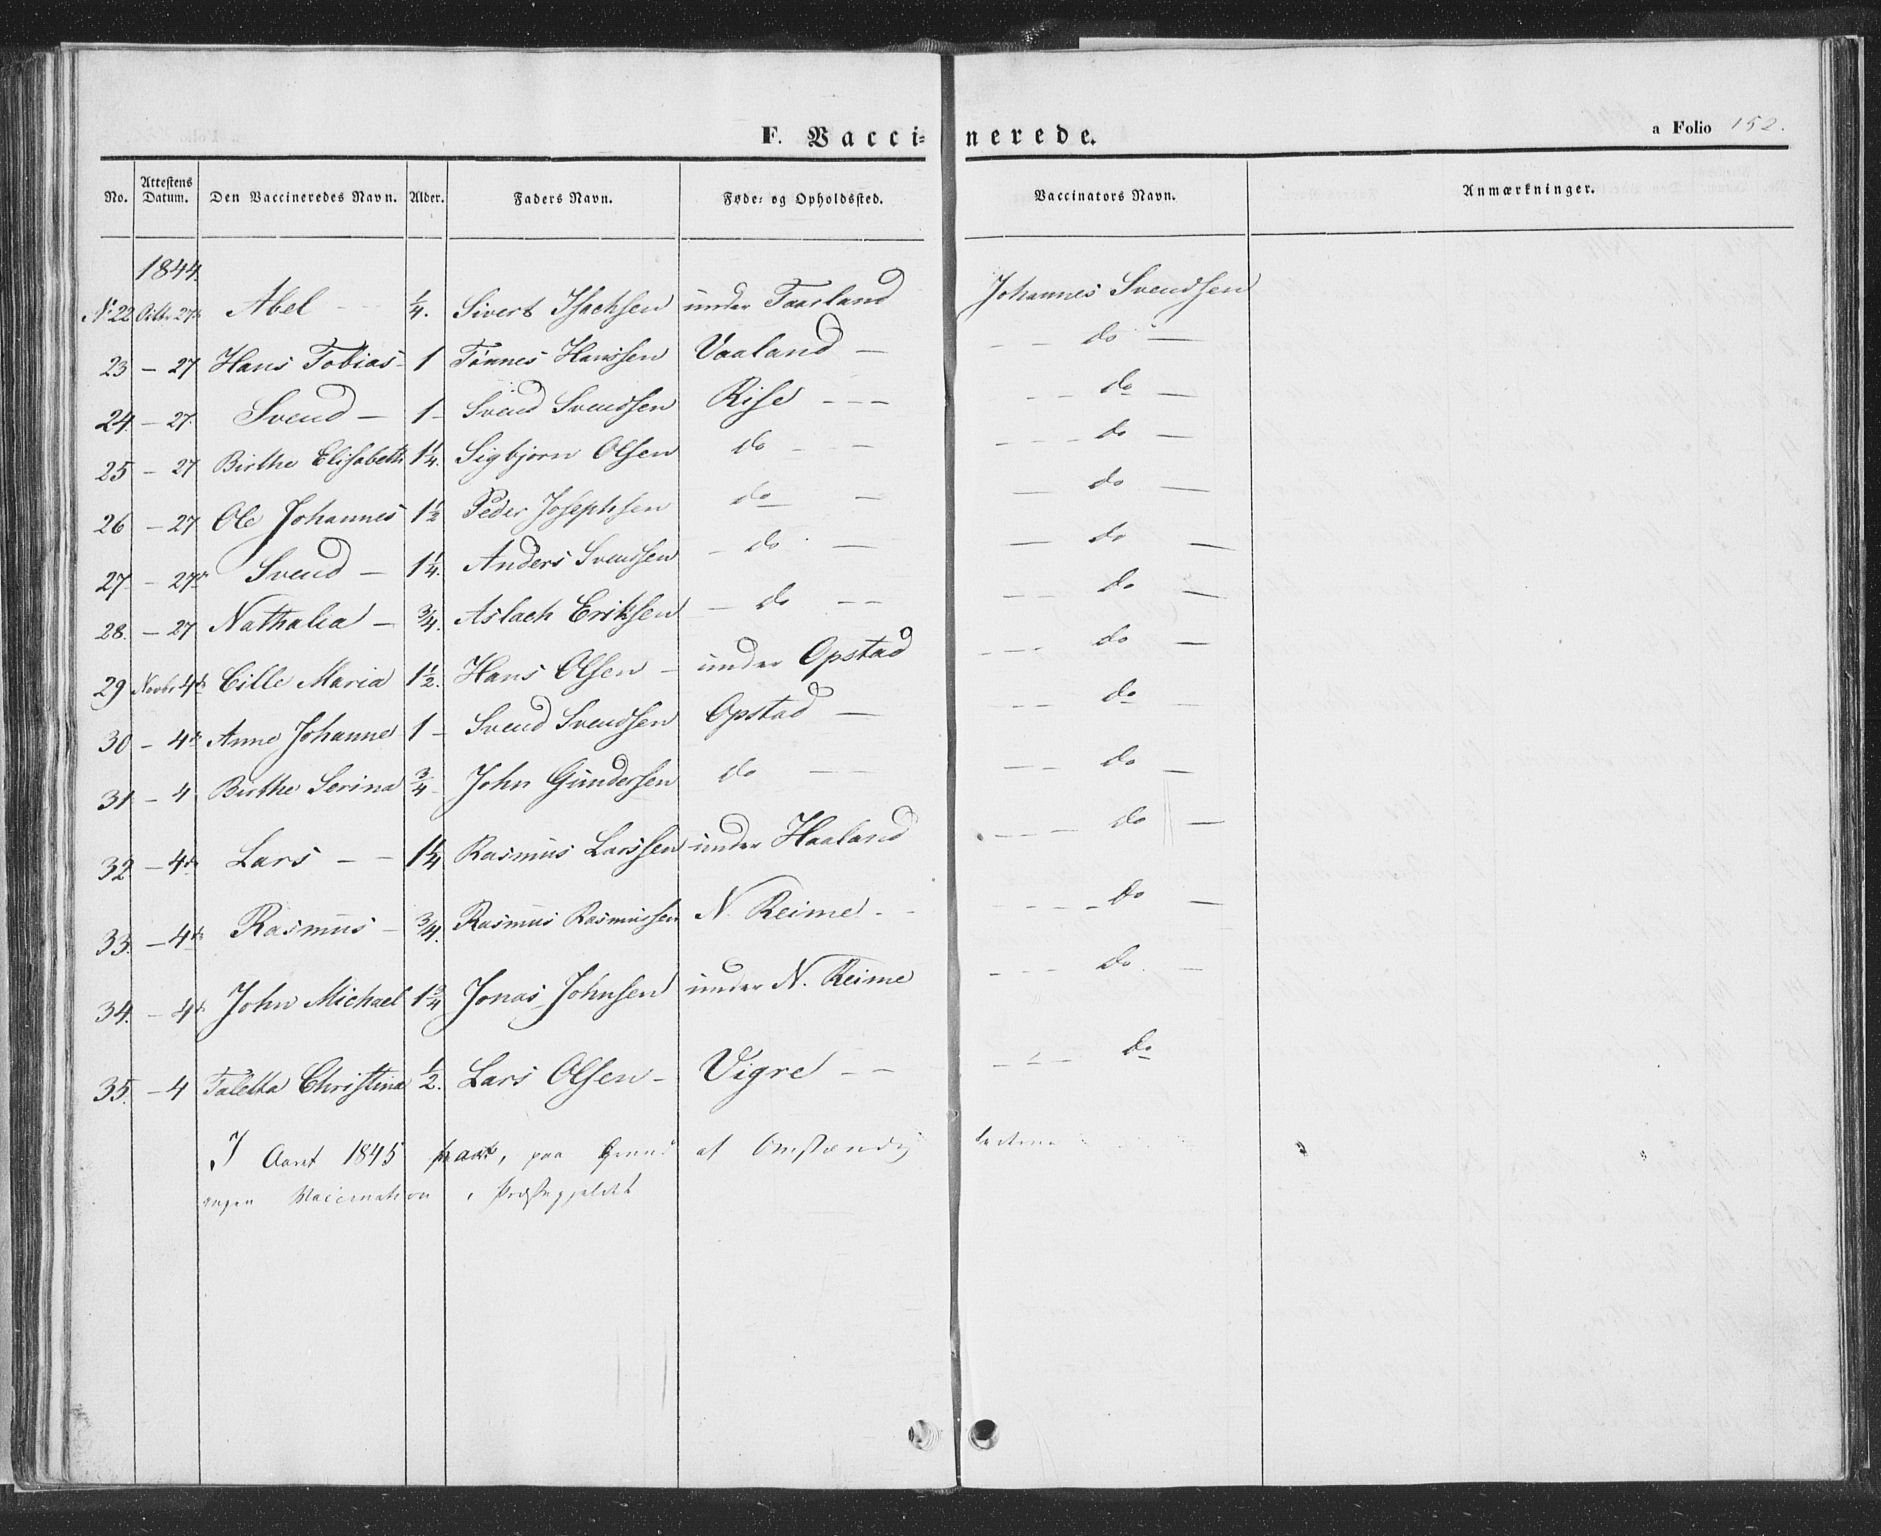 F. Vaccinerede.
a Folio 152.
No. Attestens Datum. Den Vaccineredes Navn. Alder. Faders Navn. Føde- og Opholdssted. Vaccinators Navn. Anmærkninger.
1844.
No 22 Octbr 27 Abel - 1/4. Sivert Isachsen under Taarland Johannes Svendsen
23 - 27 Hans Tobias - 1 Tønnes Hanssen Vaaland - - - do -
24. - 27. Svend - 1 - Svend Svendsen Rise - - - - - do -
25 - 27 Birthe Elisabeth 1 1/4. Sigbjorn Olsen do - - - - - do -
26 - 27 Ole Johannes 1 1/2 Peder Josephsen do - - do -
27 - 27 Svend - 1 1/4. Anders Svendsen - do - - do -
28. - 27 Nathalia - 3/4. Aslach Eriksen - do - - - - do -
29 Novbr 4de Cille Maria 1 1/2. Hans Olsen - under Opstad - - - do -
30 - 4de Anne Johanne 1 - Svend Svendsen Opstad - - - do -
31 - 4 Birthe Serina 3/4 John Gundersen do - - - - do -
32 - 4de Lars - - 1 1/4 Rasmus Larssen under Haaland - - - do -
33. - 4de Rasmus - 3/4. Rasmus Rasmussen N. Reime - - - - - - do -
34. - 4de John Michael 1 3/4 Jonas Johnsen under N. Reime - - - do. -
35. - 4 Taletta Christina 1/2. Lars Olsen - Vigre - - - - - do
I Aaret 1845 paa Grund af Omstændig
ingen Vaccination i Præstegjeldet